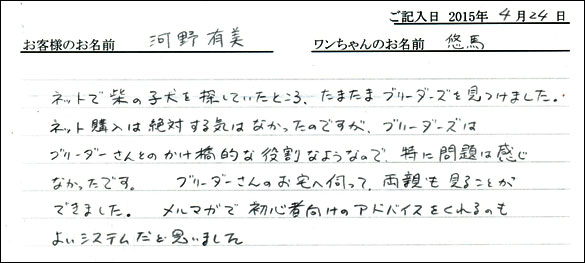 ご記入日 2015年 4月24日
お客様のお名前 河野有美 ワンちゃんのお名前 悠馬
ネットで柴の子犬を探していたところ、たまたまブリーダーズを見つけました。
ネット購入は絶対する気はなかったのですが、ブリーダーズは
ブリーダーさんとのかけ橋的な役割なようなので、特に問題は感じ
なかったです。 ブリーダーさんのお宅へ伺って、両親も見ることが
できました。 メルマガで初心者向けのアドバイスをくれるのも
よいシステムだと思いました